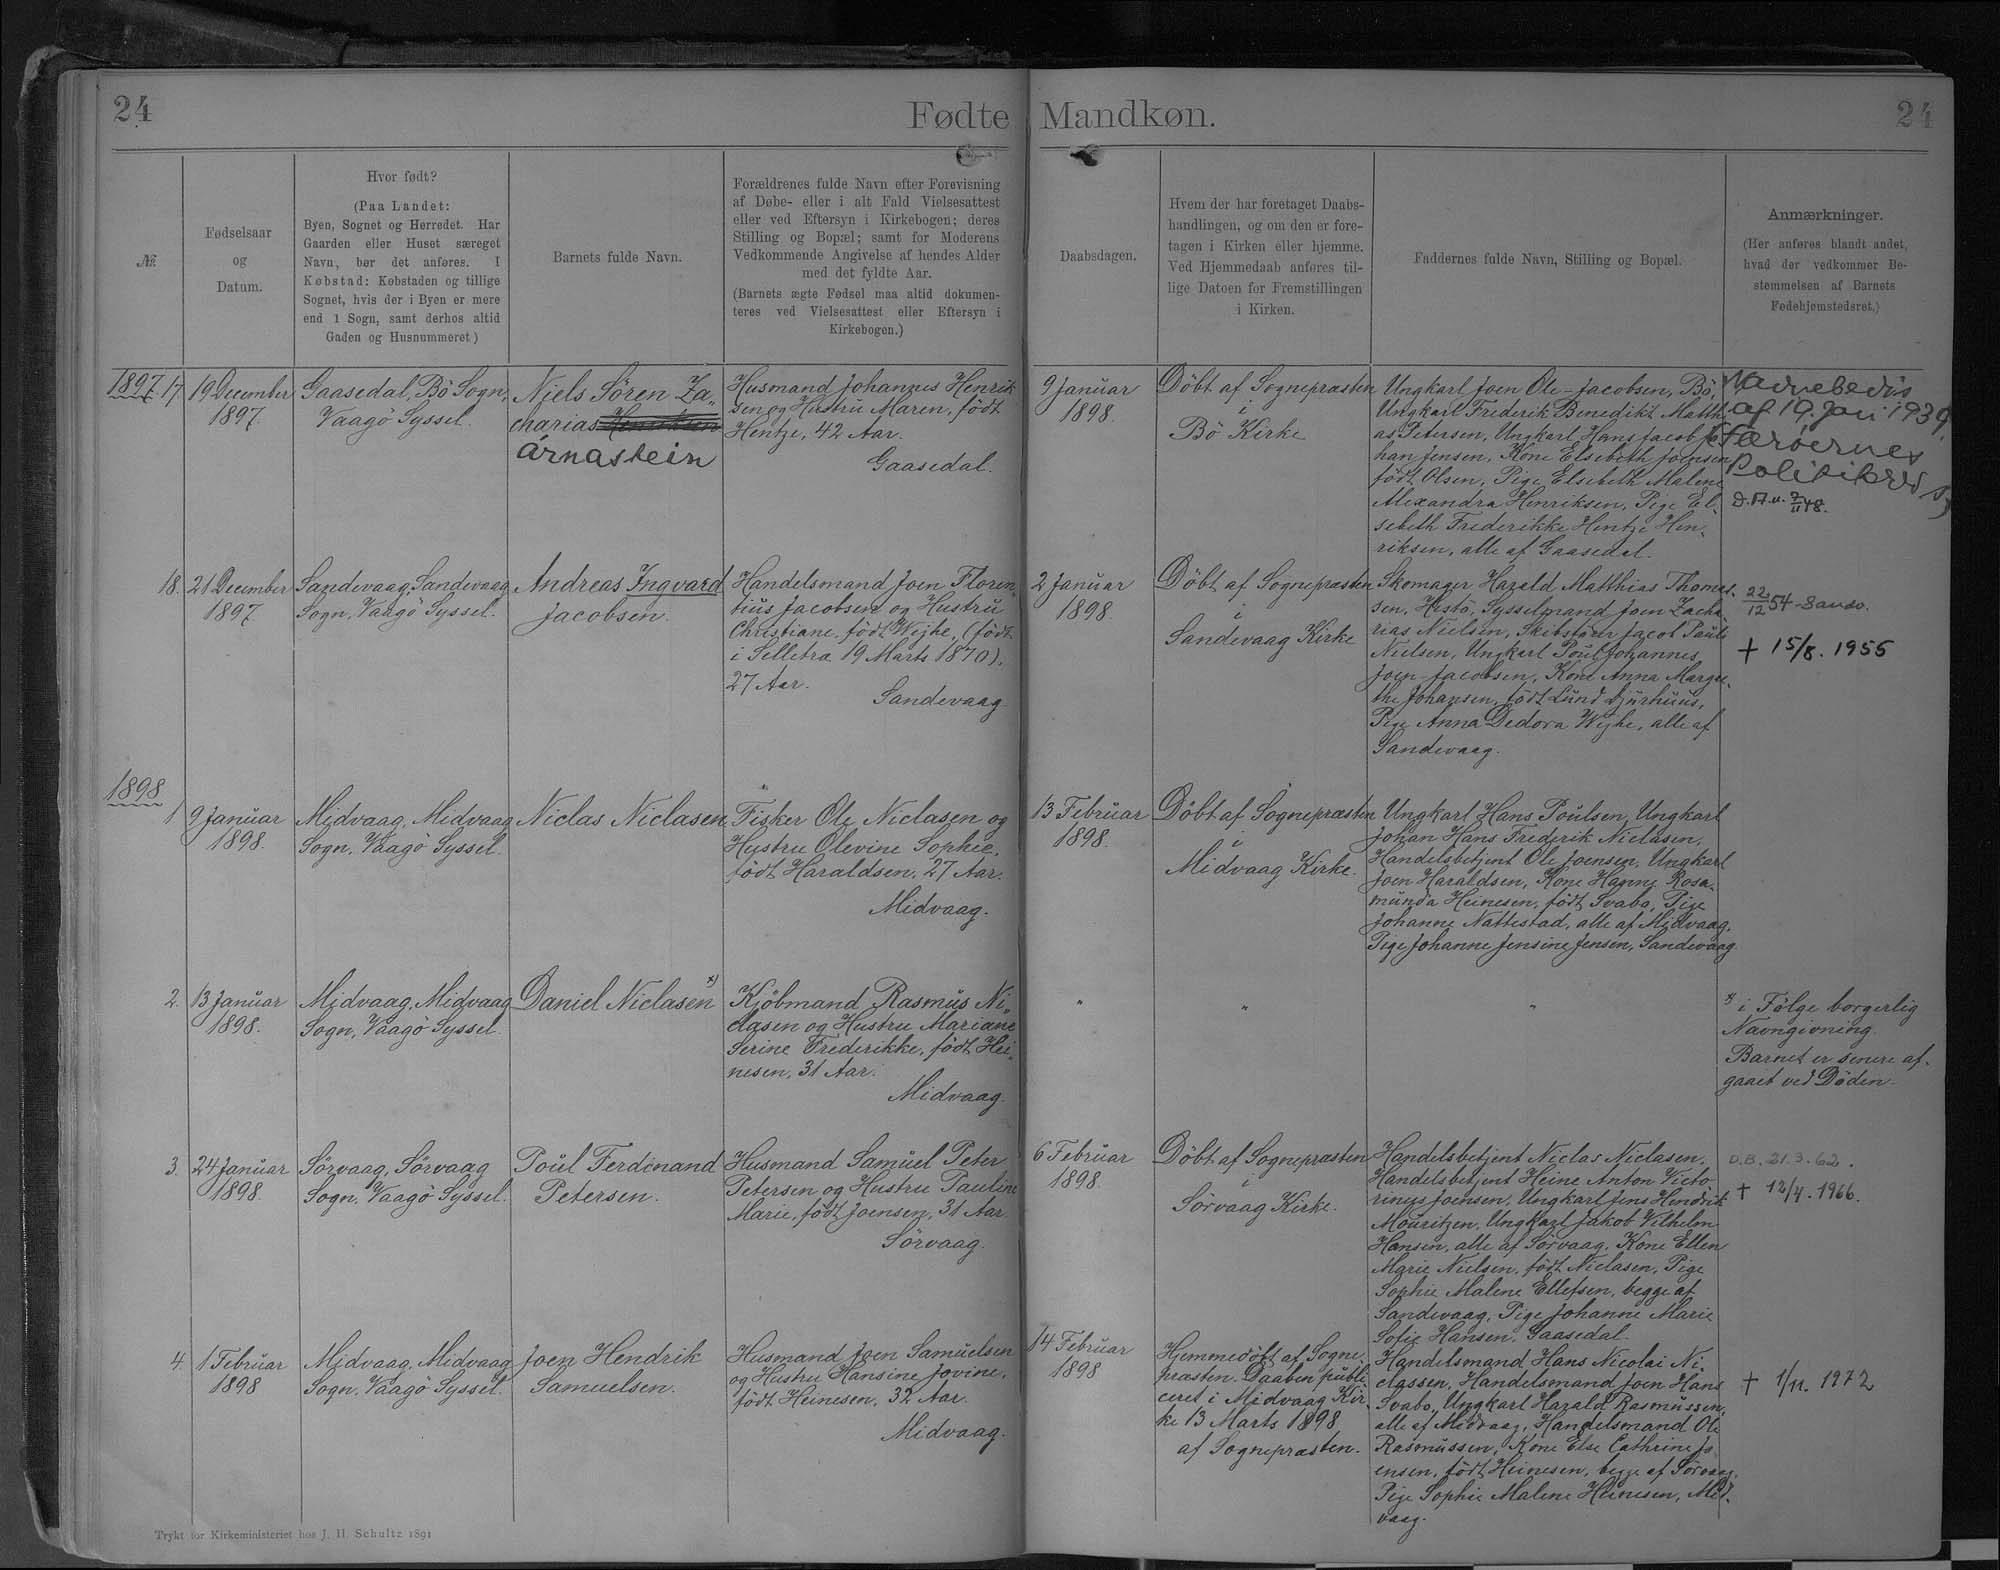 24
Fødte
Mandkøn.
24
№.
Fødselsaar
og
Datum.
Hvor født?
(Paa Landet:
Byen, Sognet og Herredet. Har
Gaarden eller Huset særeget
Navn, bør det anføres. I
Købstad: Købstaden og tillige
Sognet, hvis der i Byen er mere
end 1 Sogn, samt derhos altid
Gaden og Husnummeret)
Barnets fulde Navn.
Forældrenes fulde Navn efter Forevisning
af Døbe- eller i alt Fald Vielsesattest
eller ved Eftersyn i Kirkebogen; deres
Stilling og Bopæl; samt for Moderens
Vedkommende Angivelse af hendes Alder
med det fyldte Aar.
(Barnets ægte Fødsel maa altid dokumen-
teres ved Vielsesattest eller Eftersyn i
Kirkebogen.)
Daabsdagen.
Hvem der har foretaget Daabs-
handlingen, og om den er fore-
tagen i Kirken eller hjemme.
Ved Hjemmedaab anføres til-
lige Datoen for Fremstillingen
i Kirken.
Faddernes fulde Navn, Stilling og Bopæl.
Anmærkninger.
(Her anføres blandt andet,
hvad der vedkommer Be-
stemmelsen af Barnets
Fødehjemstedsret.)
1897
17.
19 December
1897.
Gaasedal, Bö Sogn,
Vaagö Syssel.
Niels Sören Za„
charias Henriksen
Árnastein
Husmand Johannes Henrik
sen og Hustru Maren, födt
Hentze, 42 Aar.
Gaasedal.
9 Januar
1898.
Döbt af Sognepræsten
i
Bö Kirke
Ungkarl Joen Ole-Jacobsen, Bö,
Ungkarl Frederik Benedikt Matthi
as Petersen, Ungkarl Hans Jacob Jo
han Jensen, Kone Elsebeth Joensen
födt Olsen, Pige Elsebeth Malene
Alexandra Henriksen, Pige El-
sebeth Frederikke Hentze Hen-
riksen, alle af Gaasedal.
Navnebevis
af 19. Jan 1939
Færøernes
Politikreds
D.A.u. 7/11 48.
18.
21 December
1897.
Sandevaag, Sandevaag
Sogn, Vaagö Syssel.
Andreas Ingvard
Jacobsen.
Handelsmand Joen Floren„
tius Jacobsen og Hustru
Christiane, födt Wejhe, (födt
i Selletra 19 Marts 1870).
27 Aar.
Sandevaag
2 Januar
1898.
Döbt af Sognepræsten
i
Sandevaag Kirke
Skomager Harald Matthias Thomas-
sen, Hestö, Sysselmand Joen Zacha
rias Nielsen, Jacob Pauli
Nielsen, Ungkarl Poul Johannes
Joen-Jacobsen, Kone Anna Margre-
the Johansen, födt Lund Djurhuus,
Pige Anna Dedora Wejhe, alle af
Sandevaag.
22/12 54 Sandv.
+ 15/8. 1955
1898
1
9 Januar
1898.
Midvaag, Midvaag
Sogn, Vaagö Syssel.
Niclas Niclasen
Fisker Ole Niclasen og
Hustru Olevine Sophie,
födt Haraldsen, 27 Aar.
Midvaag.
13 Februar
1898.
Döbt af Sognepræsten
i
Midvaag Kirke.
Ungkarl Hans Poulsen, Ungkarl
Johan Hans Frederik Niclasen,
Handelsbetjent Ole Joensen, Ungkarl
Joen Haraldsen, Kone Hanne Rosa-
munda Heinesen, födt Svabo, Pige
Johanne Nattestad, alle af Midvaag.
Pige Johanne Jensine Jensen, Sandevaag
2.
13 Januar
1898.
Midvaag, Midvaag
Sogn, Vaagö Syssel.
Daniel Niclasen x)
Kjöbmand Rasmus Ni„
clasen og Hustru Mariane
Serine Frederikke, födt Hei„
nesen, 31 Aar.
Midvaag.
"
"
"
x) i Fölge borgerlig
Navngivning.
Barnet er senere af-
gaaet ved Döden.
3.
24 Januar
1898.
Sörvaag, Sörvaag
Sogn, Vaagö Syssel.
Poul Ferdinand
Petersen.
Husmand Samuel Peter
Petersen og Hustru Pauline
Marie, födt Joensen, 31 Aar
Sörvaag.
6 Februar
1898.
Döbt af Sognepræsten
i
Sörvaag Kirke.
Handelsbetjent Niclas Niclasen,
Handelsbetjent Heine Anton Victo-
rinus Joensen, Ungkarl Jens Hendrik
Mouritzen, Ungkarl Jakob Vilhelm
Hansen, alle af Sörvaag, Kone Ellen
Marie Nielsen, födt Niclasen, Pige
Sophie Malene Ellefsen, begge af
Sandevaag, Pige Johanne Marie
Sofie Hansen, Gaasedal.
D.B. 21.3.62.
+ 12/4. 1966.
4.
1 Februar
1898
Midvaag, Midvaag
Sogn, Vaagö Syssel.
Joen Hendrik
Samuelsen.
Husmand Joen Samuelsen
og Hustru Hansine Jovine,
födt Heinesen, 32 Aar.
Midvaag.
14 Februar
1898
Hjemmedöbt af Sogne
præsten. Daaben publi
ceret i Midvaag Kir-
ke 13 Marts 1898
af Sognepræsten.
Handelsmand Hans Nicolai Ni-
classen, Handelsmand Joen Hans
Svabo, Ungkarl Harald Rasmussen,
alle af Midvaag, Handelsmand Ole
Rasmussen, Kone Else Cathrine Jo
ensen, födt Heinesen, begge af Sörvaag,
Pige Sophie Malene Heinesen, Mid-
vaag.
+ 1/11. 1972
Trykt for Kirkeministeriet hos J. H. Schultz 1891